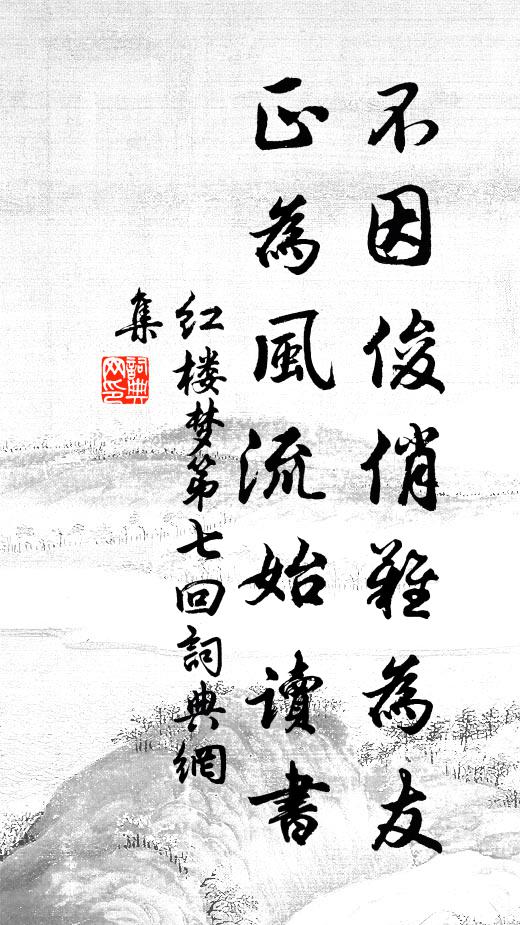 不因俊俏難為友
正為風流始讀書
红楼梦第七回詞典網
集
詞典网印